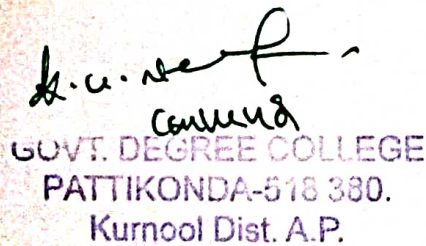 GOVT. DEGREE COLLEGE
PATTIKONDA-518 380.
Kurnool Dist. A.P.